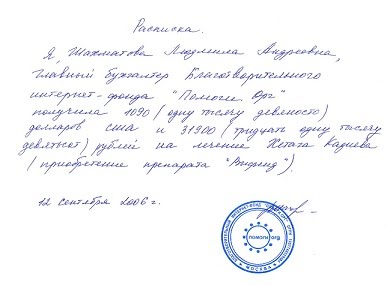 Расписка.
Я, Шахматова Людмила Андреевна,
главный бухгалтер Благотворительного
интернет-фонда "Помоги. Орг"
получила 1090 (одну тысячу девяносто)
долларов США и 31900 (тридцать одну тысячу
девятьсот) рублей на лечение Кадиева
(приобретение препарата
12 сентября 2006 г.
ПОМОГИ.ORG
МОСКВА